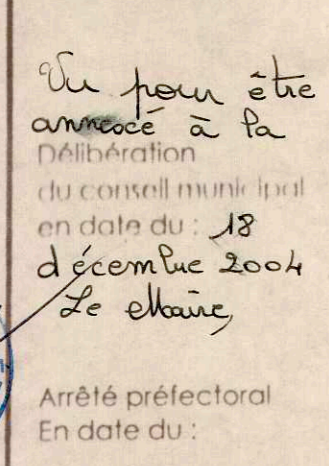 Vu pour être
annexé à la
Délibération
du conseil municipal
en date du : 18
décembre 2004
Le Maire,
Arrêté préfectoral
En date du :